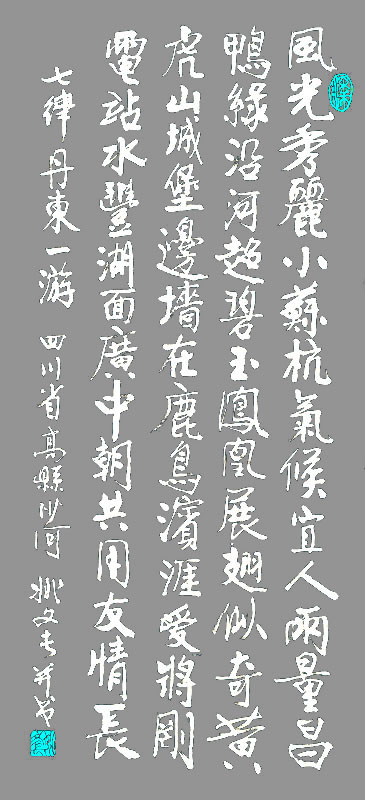 風光秀麗小蘇杭氣候宜人雨量昌
鴨綠沿河超碧玉鳳凰展翅似奇黄
虎山城堡邊墻在鹿鳥濱涯愛將剛
電站水豐湖面廣中朝共用友情長
七律 丹東一游 四川省高縣沙河 姚文并书